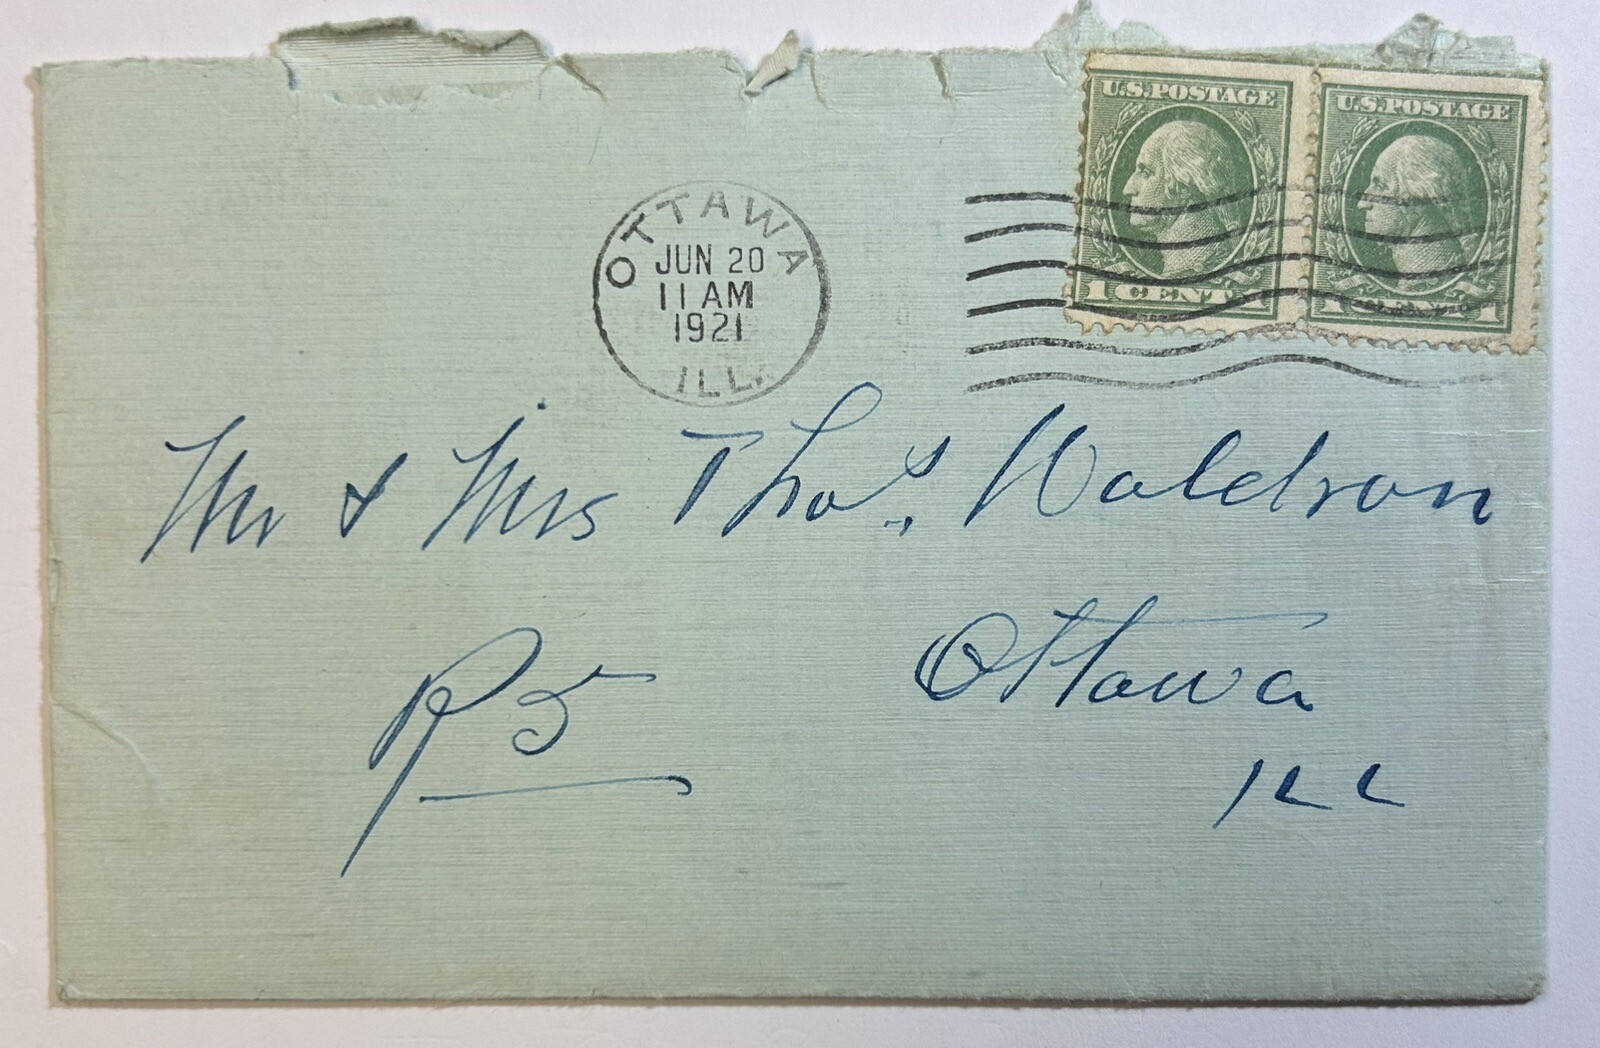 U.S. POSTAGE U.S. POSTAGE
1 CENT 1 1 CENT 1
OTTAWA
JUN 20
11 AM
1921
ILL.
Mr & Mrs Thos. Waldron
R 5
Ottawa
ILL